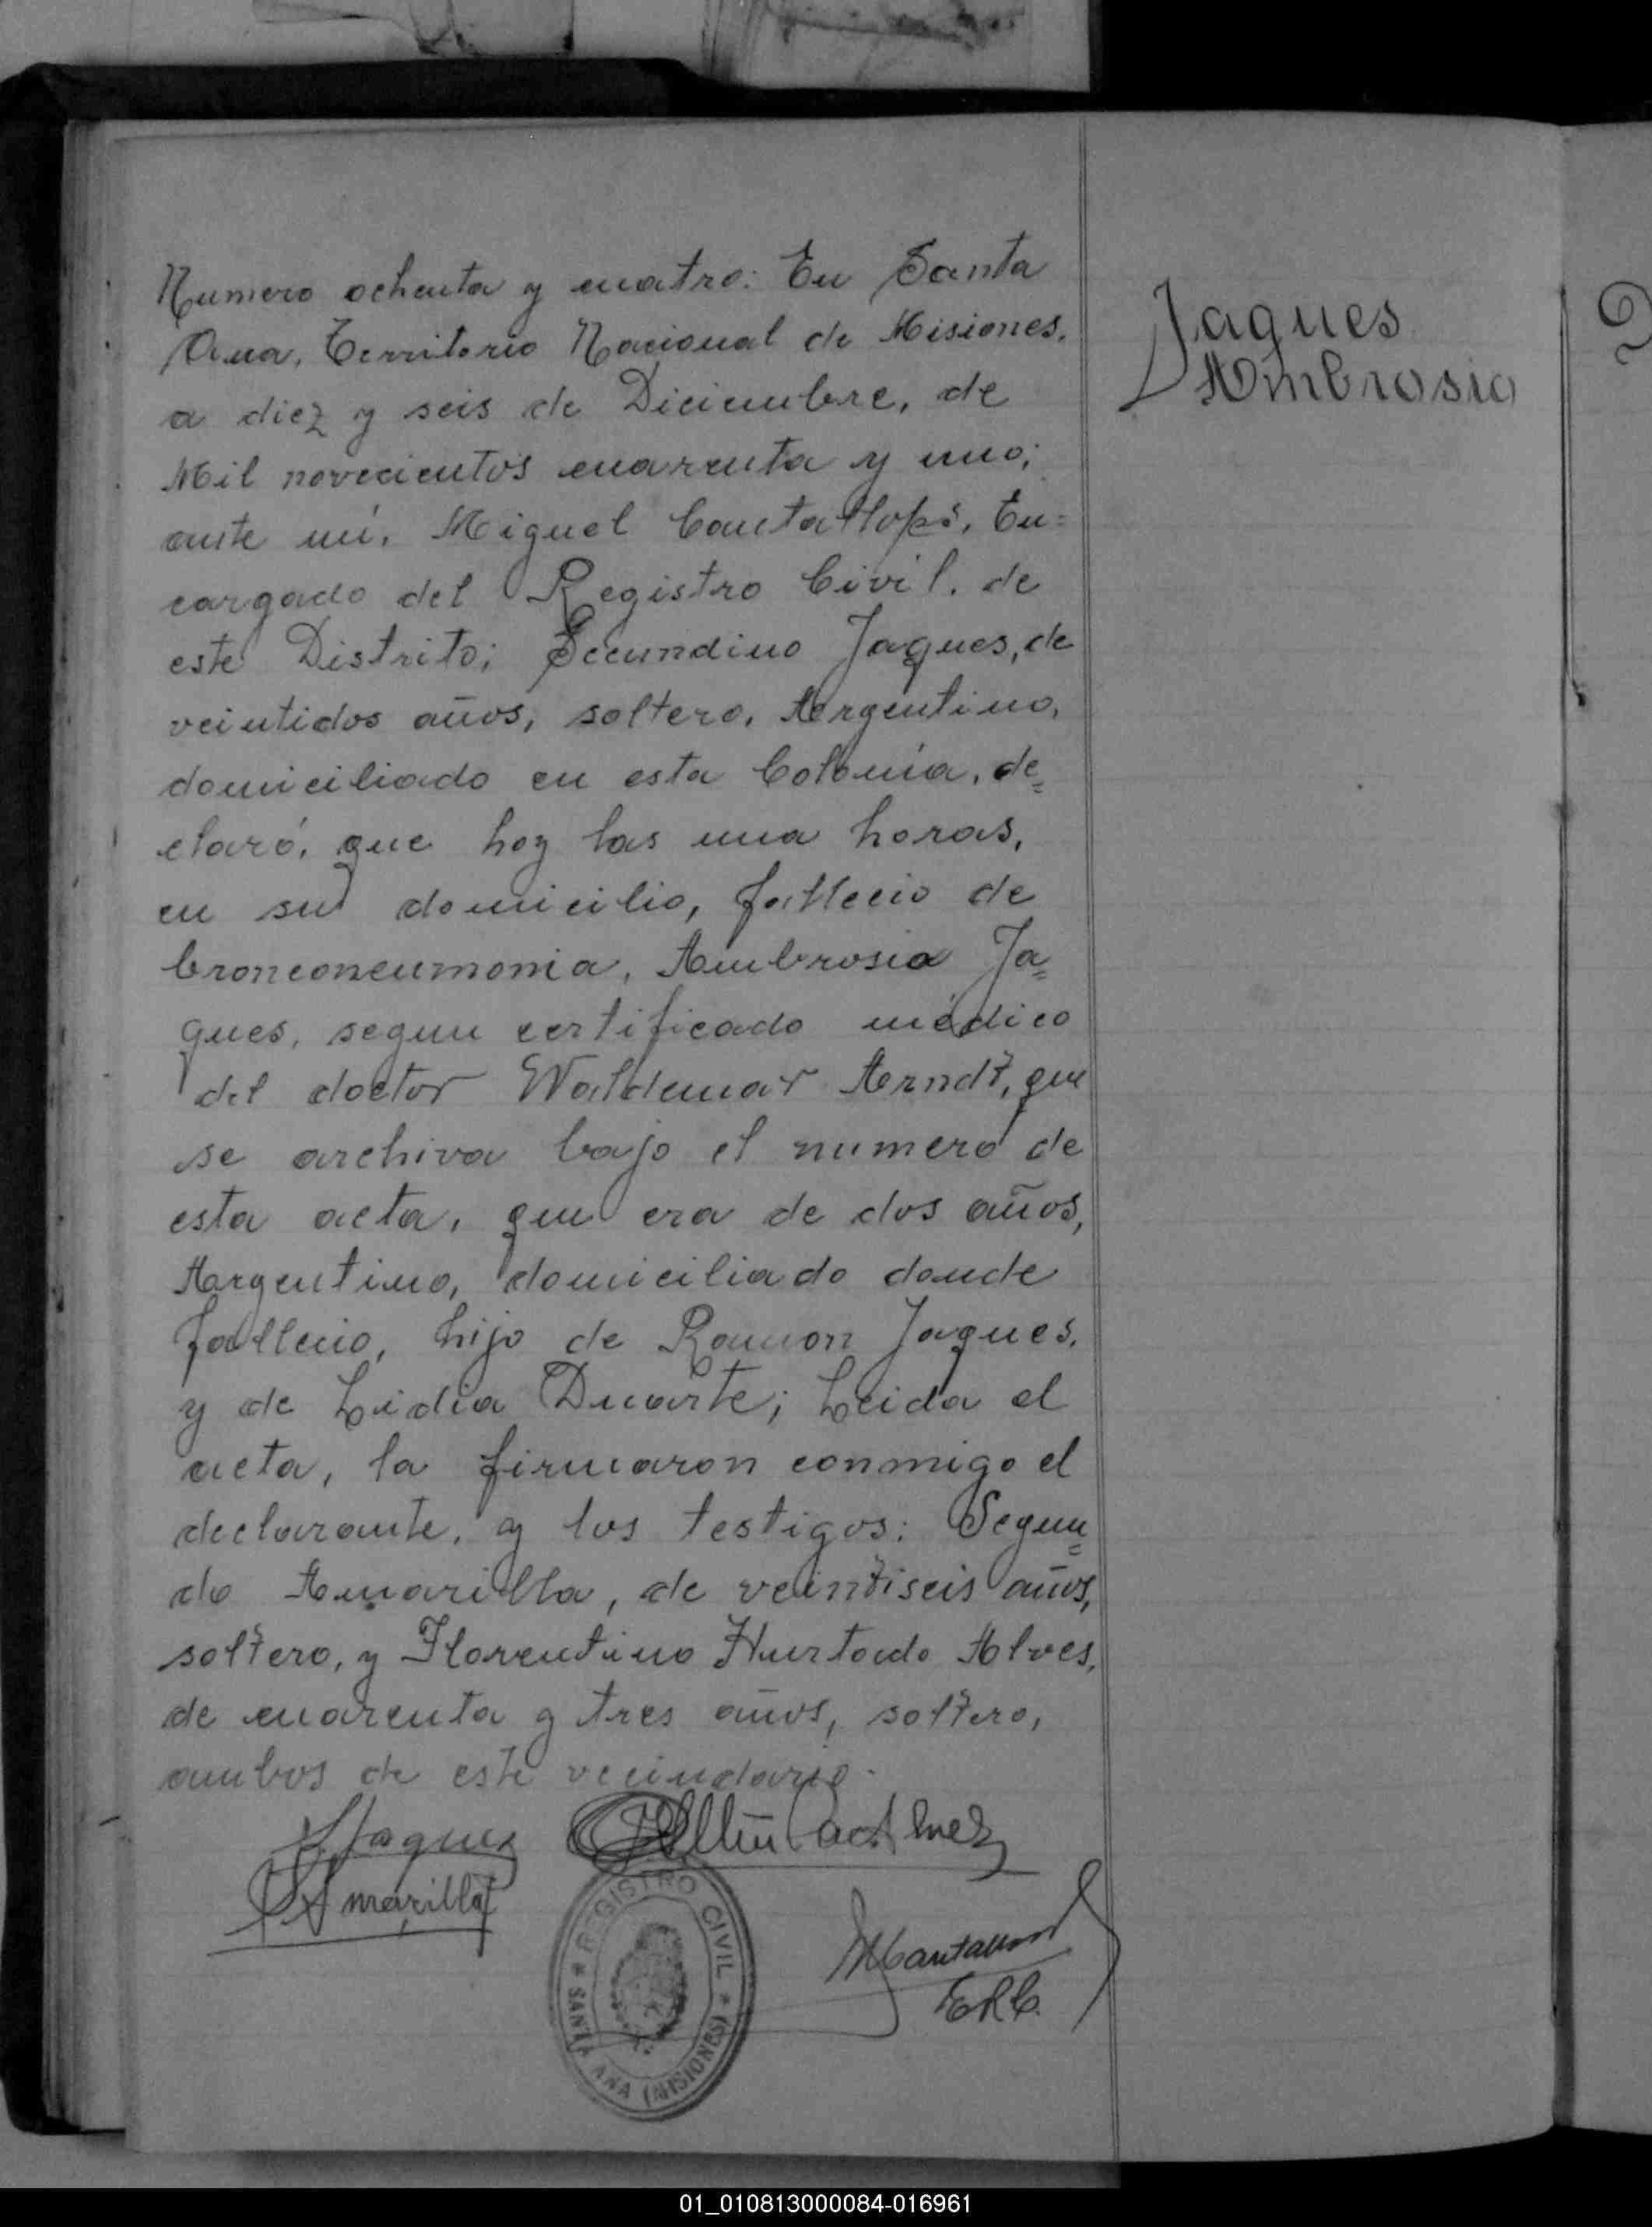 Numero ochenta y cuatro: En Santa
Ana, Territorio Nacional de Misiones,
a diez y seis de Diciembre, de
Mil novecientos cuarenta y uno;
ante mí, Miguel Cantallops, En=
cargado del Registro Civil, de
este Distrito; Secundino Jaques, de
veintidos años, soltero, Argentino,
domiciliado en esta Colonia, de=
claró, que hoy las una horas,
en su domicilio, fallecio de
bronconeumonia, Ambrosia Ja=
ques, segun certificado médico
del doctor Waldemar Arndt, que
se archiva bajo el numero de
esta acta, que era de dos años,
Argentino, domiciliado donde
fallecio, hijo de Ramon Jaques,
y de Lidia Duarte; Leida el
acta, la firmaron conmigo el
declarante, y los testigos: Segun=
do Amarilla, de veintiseis años,
soltero, y Florentino Hurtado Alves,
de cuarenta y tres años, soltero,
ambos de este vecindario.
Jaques
Ambrosia
SJaques
SAmarilla
MCantallops
ERC.
* REGISTRO CIVIL *
SANTA ANA (MISIONES)
01_010813000084-016961